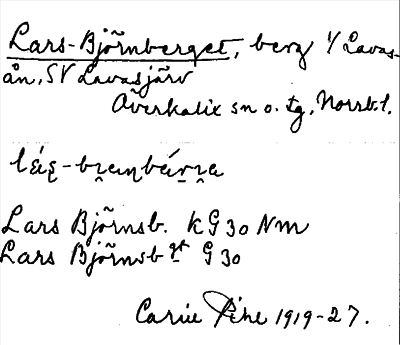 Lars-Björnberget, berg i/ Lavas-
ån, SV Lavasjärv
Överkalix sn o. tg, Norrb. l.
Lars Björnsb. KG 30 Nm
Lars Björnsb gt G 30
Carin Pihl 1919-27.